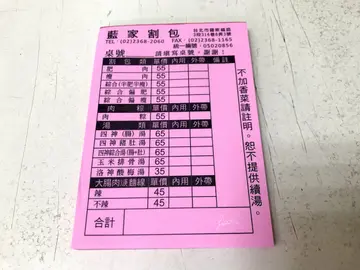 藍家割包
台北市羅斯福路
3段316巷8弄3號
TEL：(02)2368-2060 FAX：(02)2368-1165
統一編號：05020856
桌號 請填寫桌號，謝謝！
割包類 單價 內用 外帶 備註
肥肉 55
瘦肉 55
綜合(半肥半瘦) 55
綜合偏肥 55
綜合偏瘦 55
肉粽 單價 內用 外帶
肉粽 55
湯類 單價 內用 外帶
四神(腸)湯 55
四神豬肚湯 55
四神綜合湯(腸+肚) 65
玉米排骨湯 65
洛神酸梅湯 35
大腸肉羹麵線 單價 內用 外帶
辣 45
不辣 45
合計
不加香菜請註明。恕不提供續湯。